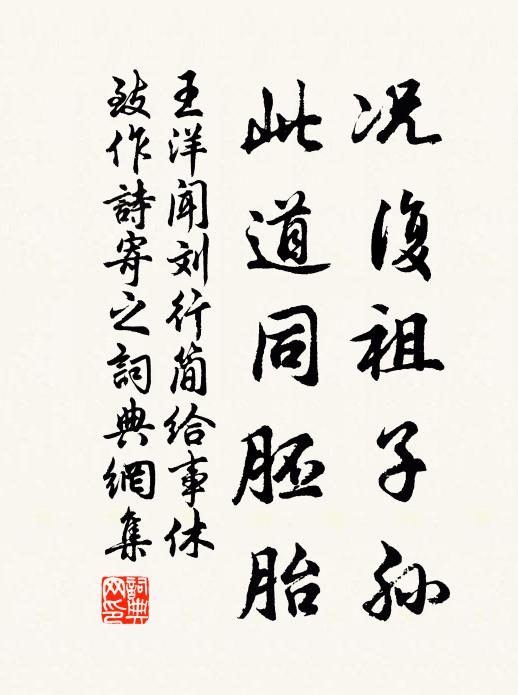 况復祖子孙
此道同胚胎
王洋闻刘行简给事休
致作詩寄之詞典網集
詞典网印